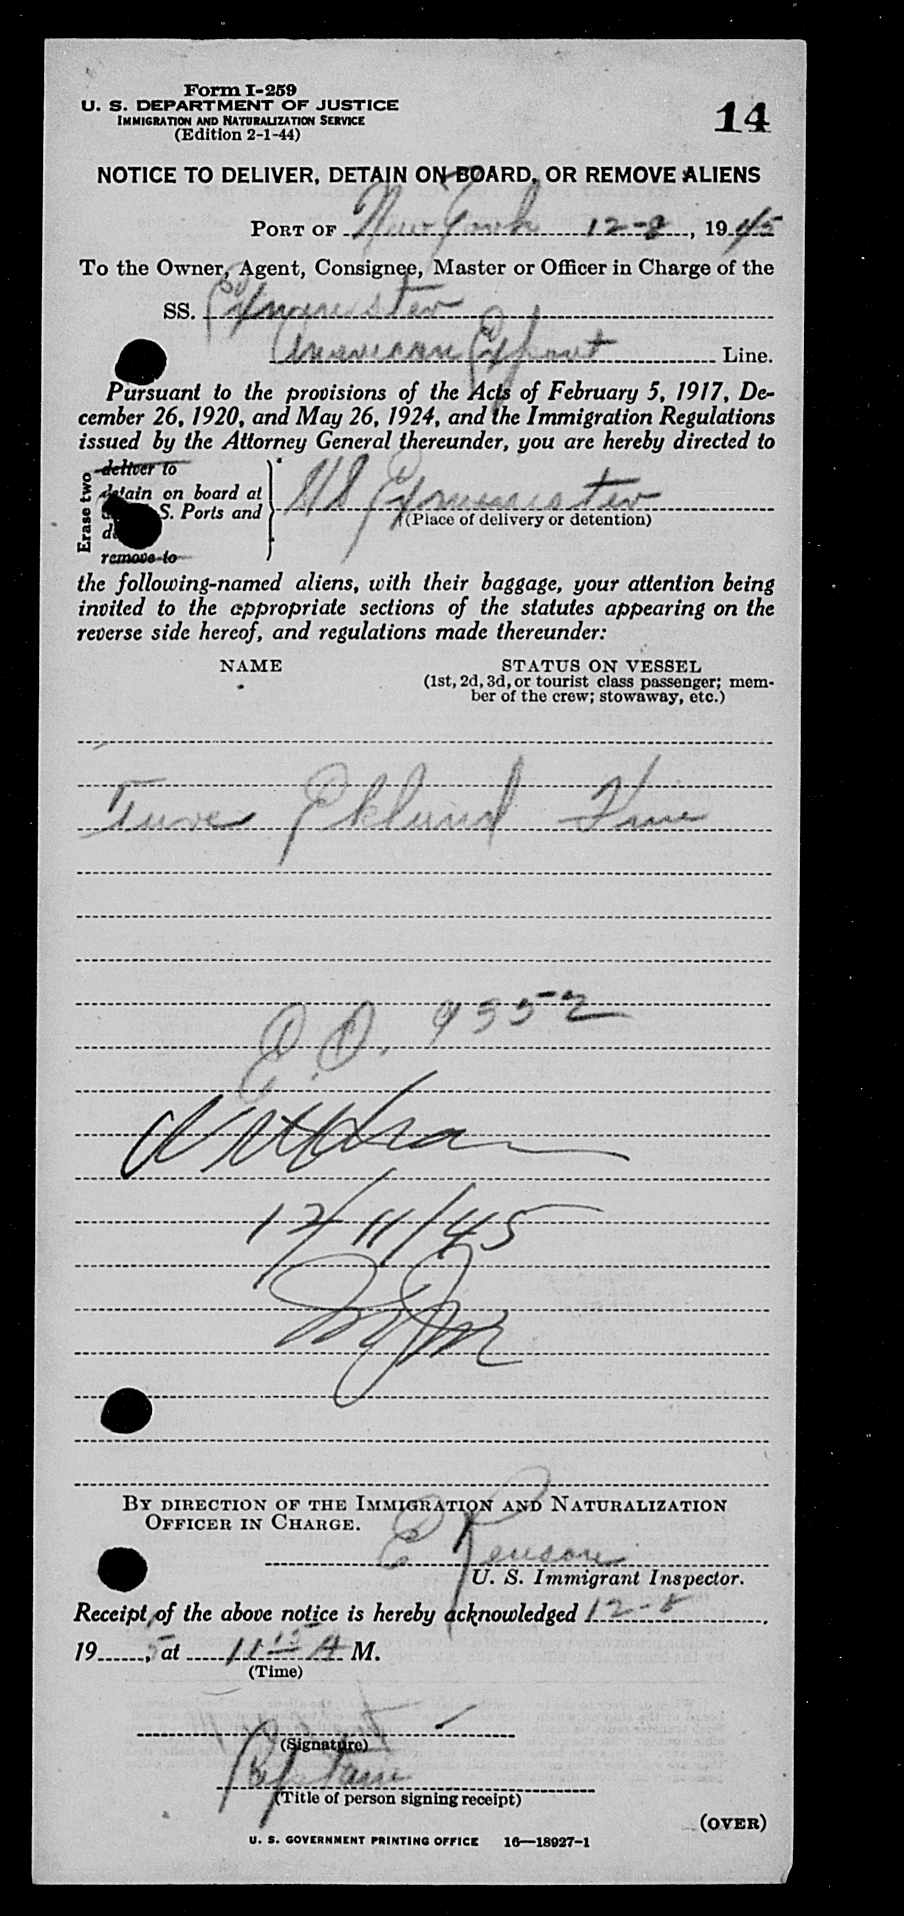 Form I-259
U. S. DEPARTMENT OF JUSTICE
IMMIGRATION AND NATURALIZATION SERVICE
(Edition 2-1-44)
14
NOTICE TO DELIVER, DETAIN ON BOARD, OR REMOVE ALIENS
PORT OF New York 12-8, 1945
To the Owner, Agent, Consignee, Master or Officer in Charge of the
SS. Exminster
American Export Line.
Pursuant to the provisions of the Acts of February 5, 1917, De-
cember 26, 1920, and May 26, 1924, and the Immigration Regulations
issued by the Attorney General thereunder, you are hereby directed to
Erase two
deliver to
detain on board at
S. Ports and
remove to
SS Exminster
(Place of delivery or detention)
the following-named aliens, with their baggage, your attention being
invited to the appropriate sections of the statutes appearing on the
reverse side hereof, and regulations made thereunder:
NAME
STATUS ON VESSEL
(1st, 2d, 3d, or tourist class passenger; mem-
ber of the crew; stowaway, etc.)
Ture Eklund Finn
E.O. 9352
12/11/45
BY DIRECTION OF THE IMMIGRATION AND NATURALIZATION
OFFICER IN CHARGE.
E
U. S. Immigrant Inspector.
Receipt of the above notice is hereby acknowledged 12-8,
19 5 at 11 15 A M.
(Time)
(Signature)
Captain
(Title of person signing receipt)
(OVER)
U. S. GOVERNMENT PRINTING OFFICE 16—18927-1